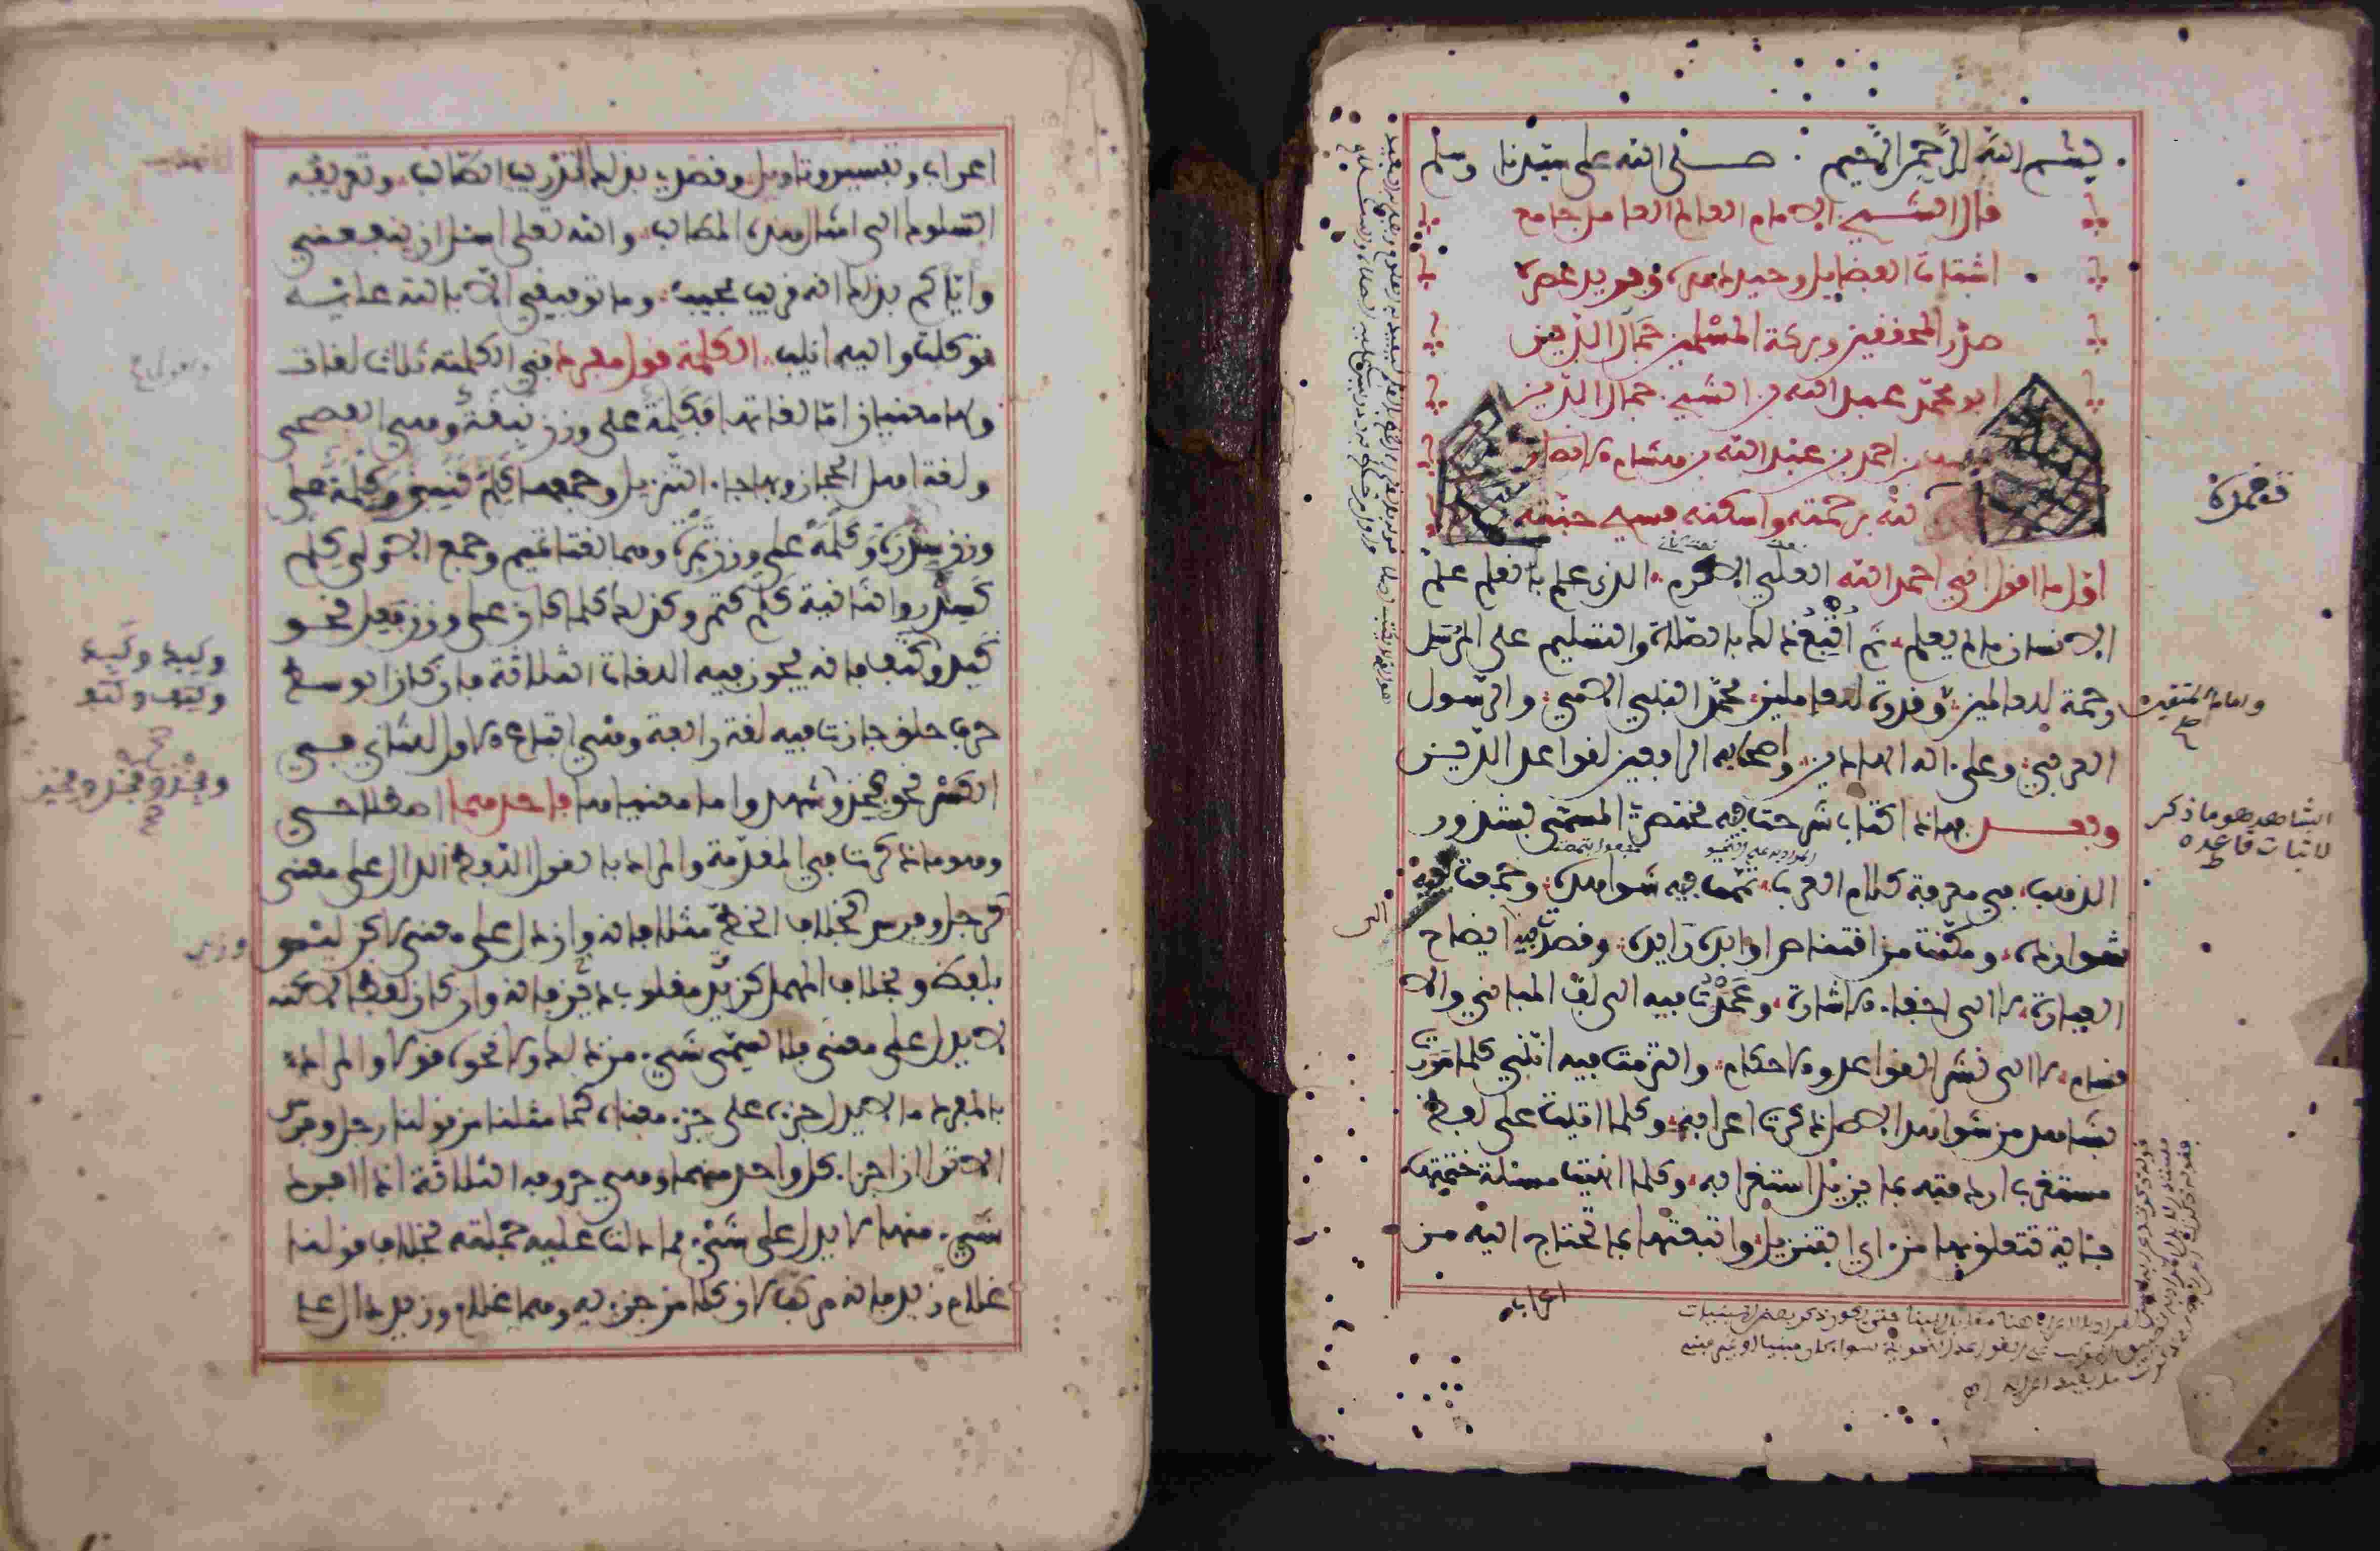 بسم الله الرحمن الرحيم صلى الله على سيدنا وسلم
قال الشيخ الامام العالم العامل جامع
اشتات الفضايل وحيد دهره وفريد عصره
صدر المحققين وبركة المسلمين جمال الدين
ابو محمد عبد الله بن الشيخ جمال الدين
بن احمد بن عبد الله بن هشام الانصار
الله برحمته واسكنه فسيح جنته
اول ما اقول اني احمد الله العلي الاكرم الذي علم بالقلم علم
الانسان ما لم يعلم ثم اتبع ذلك بالصلاة والتسليم على المرسل
رحمة للعالمين وقدوة للعاملين محمد النبي الامي والرسول
العربي وعلى اله الهادين واصحابه الرافعين لقواعد الدين
وبعد فهذا كتاب شرحت فيه مختصري المسمى بشذور
الذهب في معرفة كلام العرب تممت فيه شواهده وجمعت فيه
شوارده ومكنت من اقتناص اوابده رايده وقصدت فيه ايضاح
العبارة لا الى اخفاء الاشارة وعمدت فيه الى لف المباني والا
قسام لا الى نشر القواعد والاحكام والتزمت فيه انني كلما مررت
بشاهد من شواهد الاصل ذكرت اعرابه وكلما اتيت على لفظ
مستغرب اردفته بما يزيل استغرابه وكلما انهيت مسئلة ختمتها
بئاية تتعلق بها من اي التنزيل واتبعتها بما تحتاج اليه من
اعراب
تغمده
وامام المتقين
صح
الشاهد هو ما ذكر
لاثبات قاعدة
اعراب وتفسير وتاويل وقصدي بذلك تدريب الطالب وتعريفه
السلوك الى امثال هذه المطالب والله تعلى اسئل ان ينفعني
واياكم بذلك انه قريب مجيب وما توفيقي الا بالله عليه
توكلت واليه انيب الكلمة قول مفرد في الكلمة ثلاث لغات
ولها معنيان اما لغاتها فكلمة على وزن نبقة وهي الفصحى
ولغة اهل الحجاز وبها جاء التنزيل وجمعها كلم كنبق وكلمة على
وزن سدرة وكلمة على وزن تمرة وهما لغتا تميم وجمع الاولى كلم
كسدر والثانية كلم كتمر وكذلك كلما كان على وزن فعل نحو
كبد وكتف فانه يجوز فيه اللغات الثلاثة فان كان الوسط
حرف حلق جازت فيه لغة رابعة وهي اتباع الاول للثاني في
الكسر نحو فخذ وشهد واما معنياها فاحدهما اصطلاحي
وهو ما ذكرت في المقدمة والمراد بالقول اللفظ الدال على معنى
كرجل وفرس بخلاف الخط مثلا فانه وان دل على معنى لاكن ليس هو
بلفظ وبخلاف المهمل كزيد مقلوب ديز فانه وان كان لفظا لاكنه
لا يدل على معنى فلا يسمى شيء من ذلك ونحوه قولا والمراد
بالمفرد ما لا يدل جزءه على جزء معناه كما مثلنا من قولنا رجل وفرس
الا ترا ان اجزاء كل واحد منهما وهي حروفه الثلاثة اذا افرد
شيء منها لا يدل على شيء مما دلت عليه جملته بخلاف قولنا
غلام زيد فانه مركب لان كلا من جزءيه وهما غلام وزيد دال على
وكبد وكبد
وكتف وكتف
صح
وفخذ وفخذ وفخذ